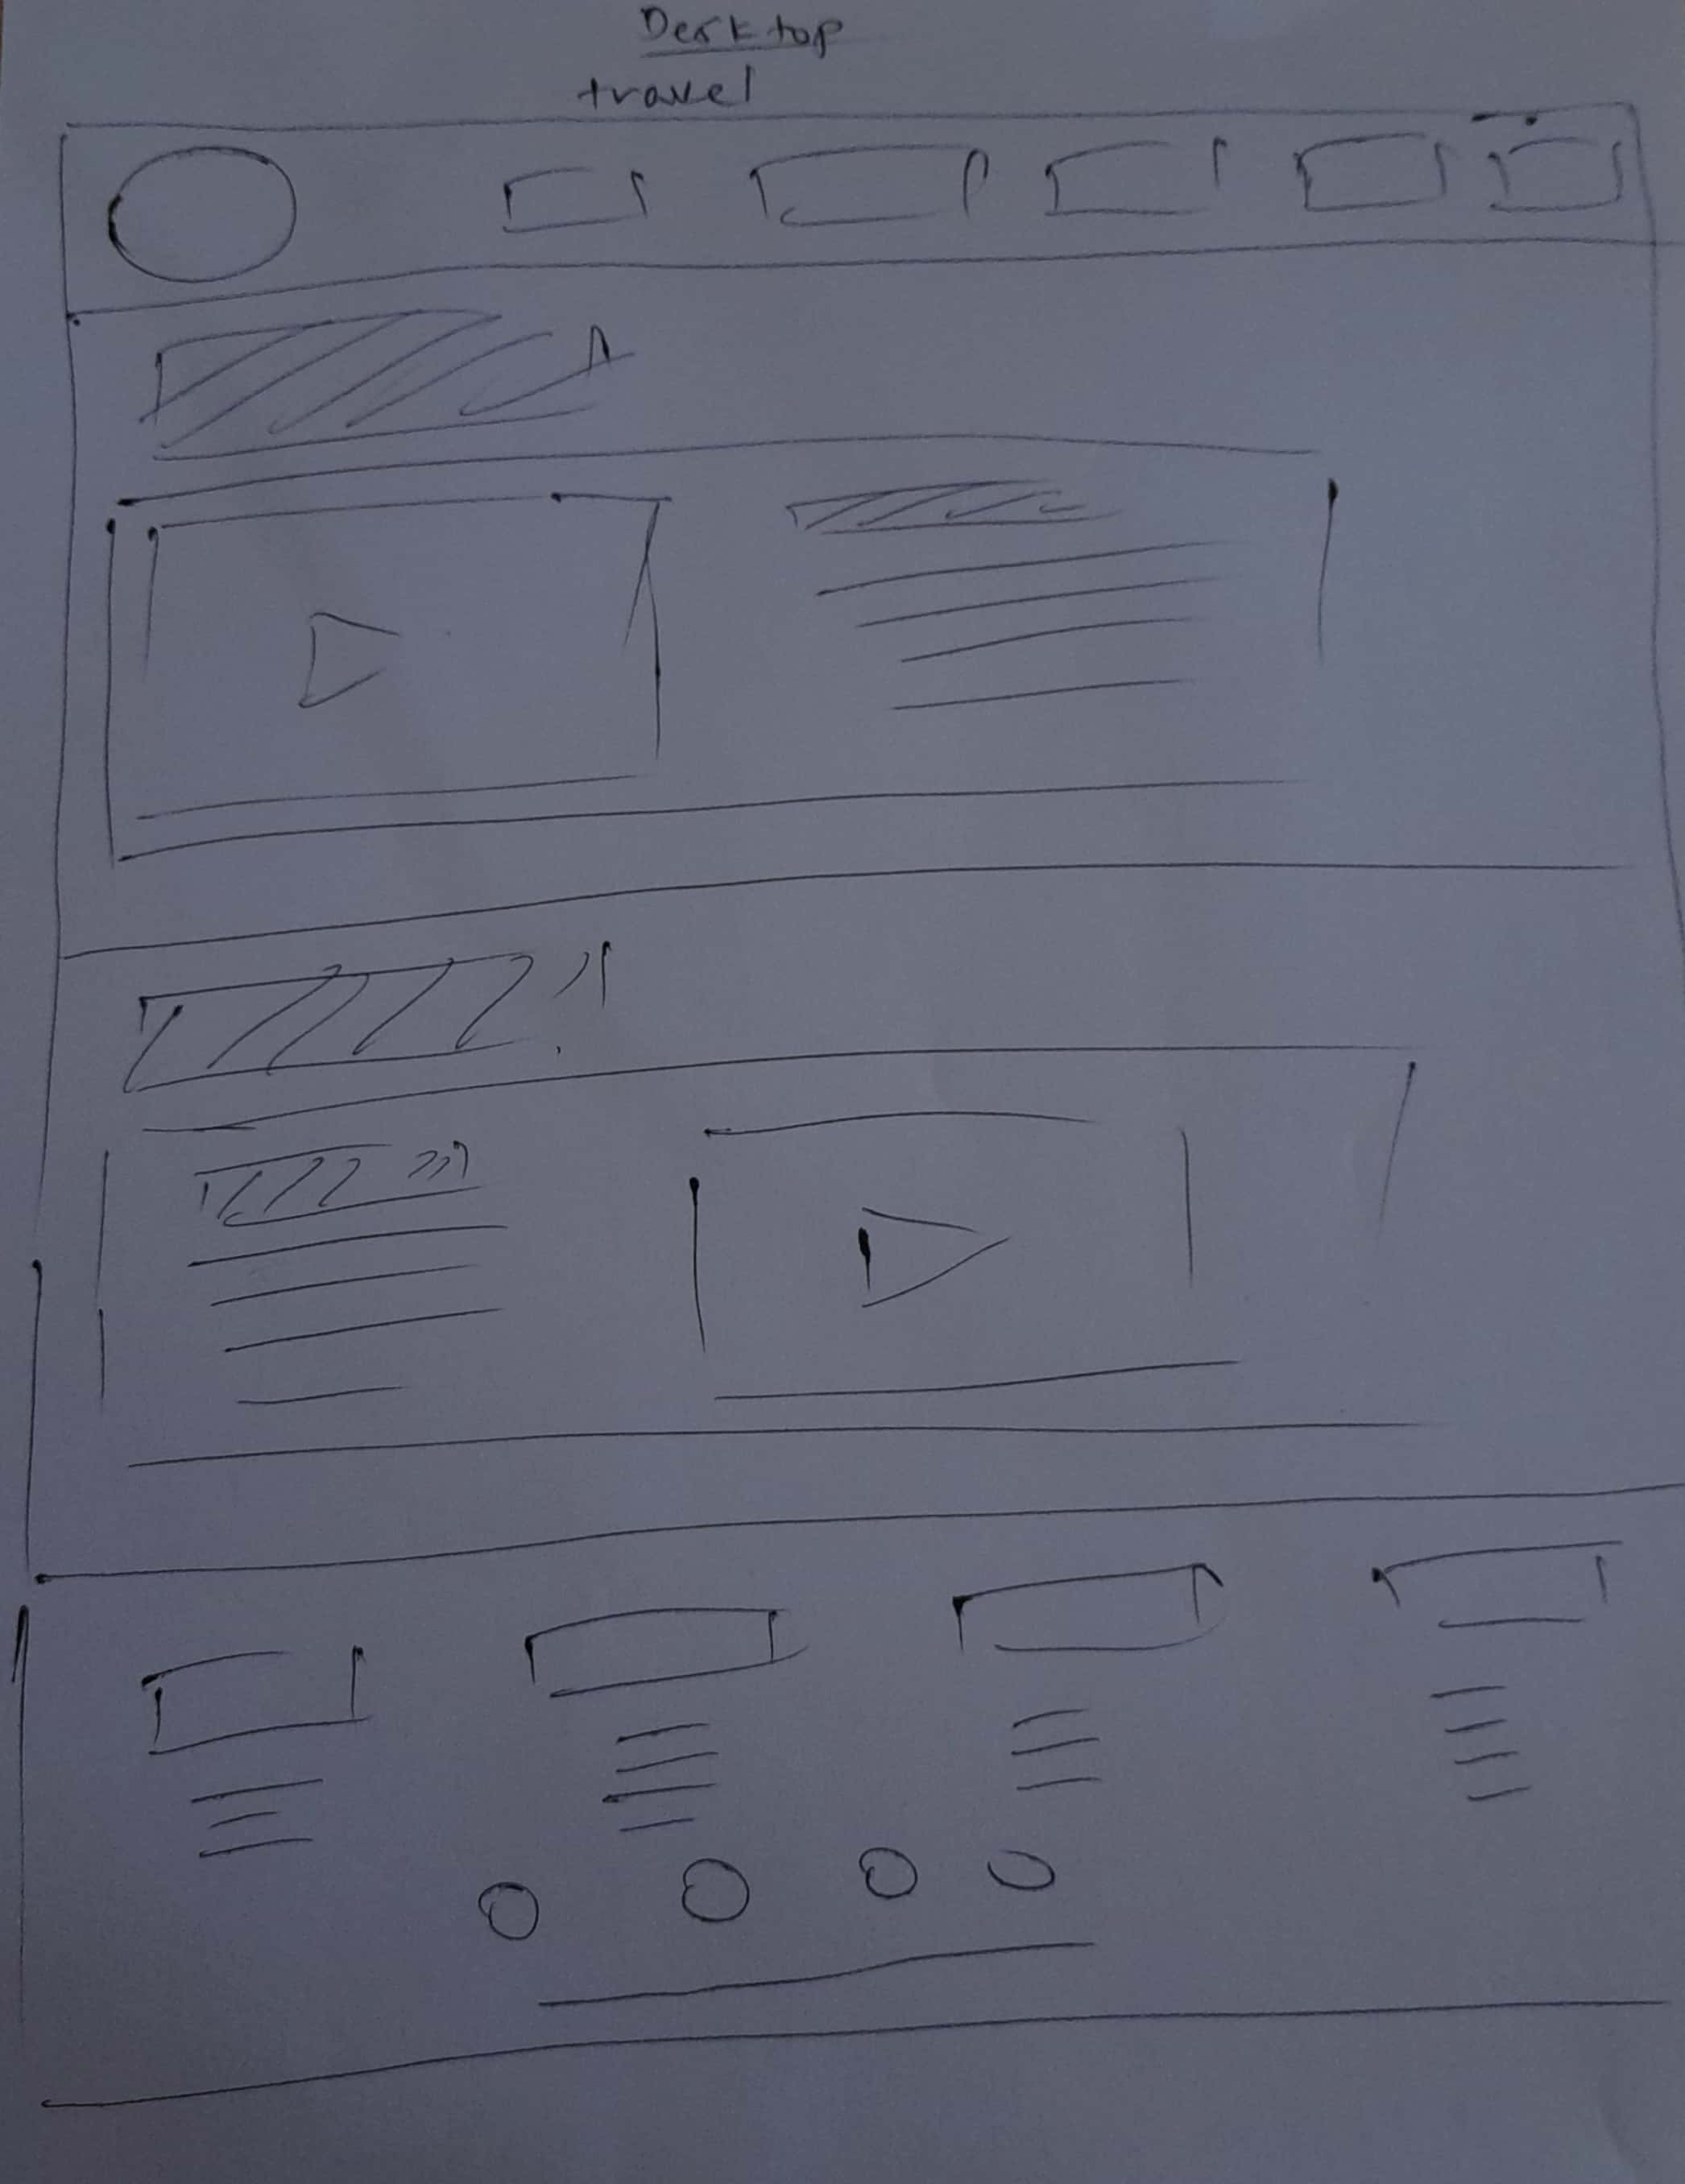 Desktop
travel